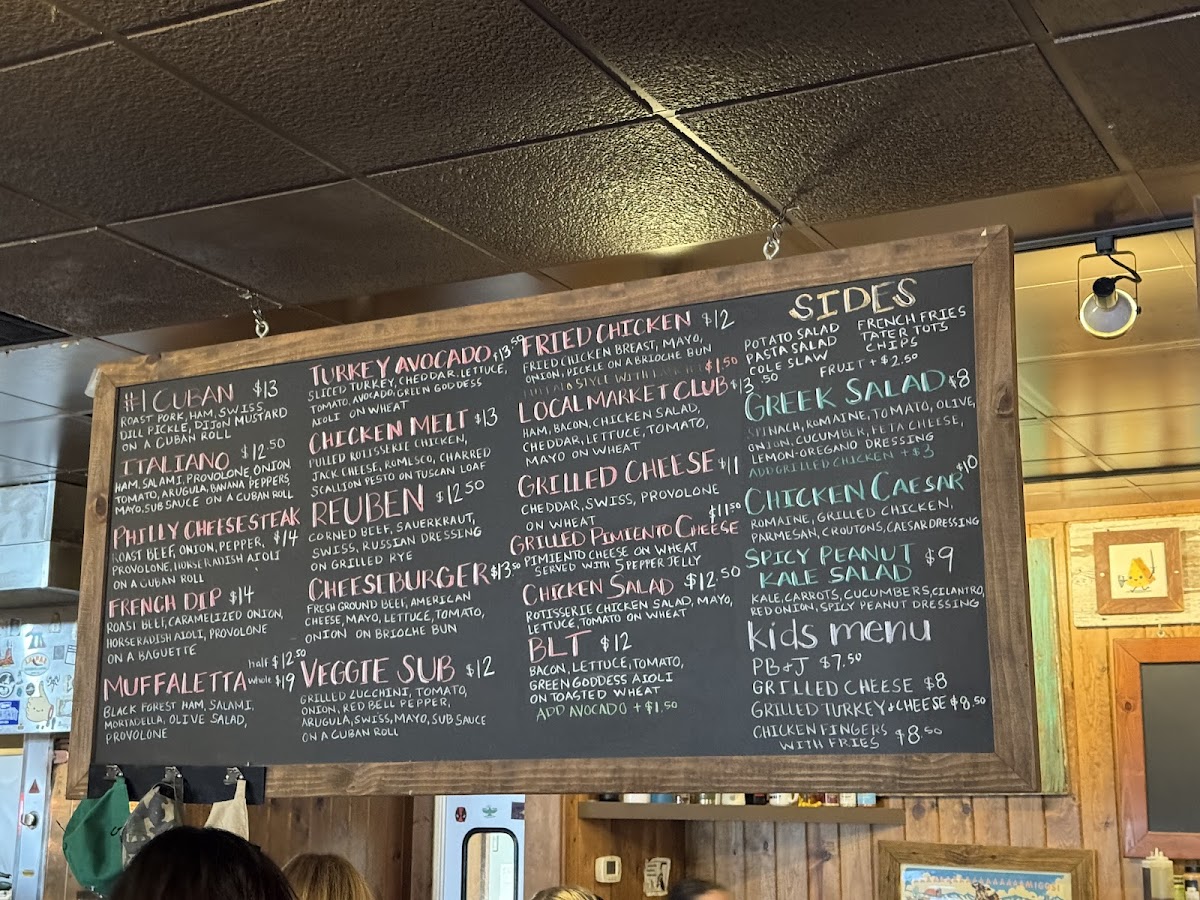 #1 CUBAN $13
ROAST PORK, HAM, SWISS,
DILL PICKLE, DIJON MUSTARD
ON A CUBAN ROLL
ITALIANO $12.50
HAM, SALAMI, PROVOLONE, ONION
TOMATO, ARUGULA, BANANA PEPPERS,
MAYO, SUB SAUCE ON A CUBAN ROLL
PHILLY CHEESESTEAK $14
ROAST BEEF, ONION, PEPPER,
PROVOLONE, HORSERADISH AIOLI
ON A CUBAN ROLL
FRENCH DIP $14
ROAST BEEF, CARAMELIZED ONION,
HORSERADISH AIOLI, PROVOLONE
ON A BAGUETTE
MUFFALETTA half $12.50
whole $19
BLACK FOREST HAM, SALAMI,
MORTADELLA, OLIVE SALAD,
PROVOLONE
TURKEY AVOCADO $13.50
SLICED TURKEY, CHEDDAR, LETTUCE,
TOMATO, AVOCADO, GREEN GODDESS
AIOLI ON WHEAT
CHICKEN MELT $13
PULLED ROTISSERIE CHICKEN,
JACK CHEESE, ROMESCO, CHARRED
SCALLION PESTO ON TUSCAN LOAF
REUBEN $12.50
CORNED BEEF, SAUERKRAUT,
SWISS, RUSSIAN DRESSING
ON GRILLED RYE
CHEESEBURGER $13.50
FRESH GROUND BEEF, AMERICAN
CHEESE, MAYO, LETTUCE, TOMATO,
ONION ON BRIOCHE BUN
VEGGIE SUB $12
GRILLED ZUCCHINI, TOMATO,
ONION, RED BELL PEPPER,
ARUGULA, SWISS, MAYO, SUB SAUCE
ON A CUBAN ROLL
FRIED CHICKEN $12
FRIED CHICKEN BREAST, MAYO,
ONION, PICKLE ON A BRIOCHE BUN
STYLE WITH $1.50
LOCAL MARKET CLUB $13.50
HAM, BACON, CHICKEN SALAD,
CHEDDAR, LETTUCE, TOMATO,
MAYO ON WHEAT
GRILLED CHEESE $11
CHEDDAR, SWISS, PROVOLONE
ON WHEAT
GRILLED PIMIENTO CHEESE $11.50
PIMIENTO CHEESE ON WHEAT
SERVED WITH 5 PEPPER JELLY
CHICKEN SALAD $12.50
ROTISSERIE CHICKEN SALAD, MAYO,
LETTUCE, TOMATO ON WHEAT
BLT $12
BACON, LETTUCE, TOMATO,
GREEN GODDESS AIOLI
ON TOASTED WHEAT
ADD AVOCADO + $1.50
SIDES
POTATO SALAD
PASTA SALAD
COLE SLAW
FRENCH FRIES
TATER TOTS
CHIPS
FRUIT + $2.50
GREEK SALAD $8
SPINACH, ROMAINE, TOMATO, OLIVE,
ONION, CUCUMBER, FETA CHEESE,
LEMON-OREGANO DRESSING
ADD GRILLED CHICKEN + $3
CHICKEN CAESAR $10
ROMAINE, GRILLED CHICKEN,
PARMESAN, CROUTONS, CAESAR DRESSING
SPICY PEANUT
KALE SALAD $9
KALE, CARROTS, CUCUMBERS, CILANTRO,
RED ONION, SPICY PEANUT DRESSING
kids menu
PB+J $7.50
GRILLED CHEESE $8
GRILLED TURKEY + CHEESE $8.50
CHICKEN FINGERS
WITH FRIES $8.50